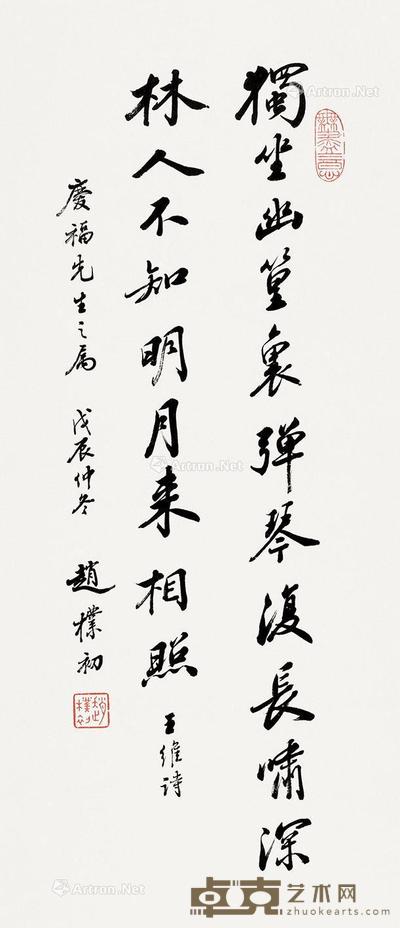 獨坐幽篁裏弹琴復長嘯深
林人不知明月来相照
王維詩
慶福先生之属 戊辰仲冬 趙樸初
趙樸初
Artron.Net
Artron.Net
Artron.Net
Artron.Net
卓克艺术网
zhuokearts.com